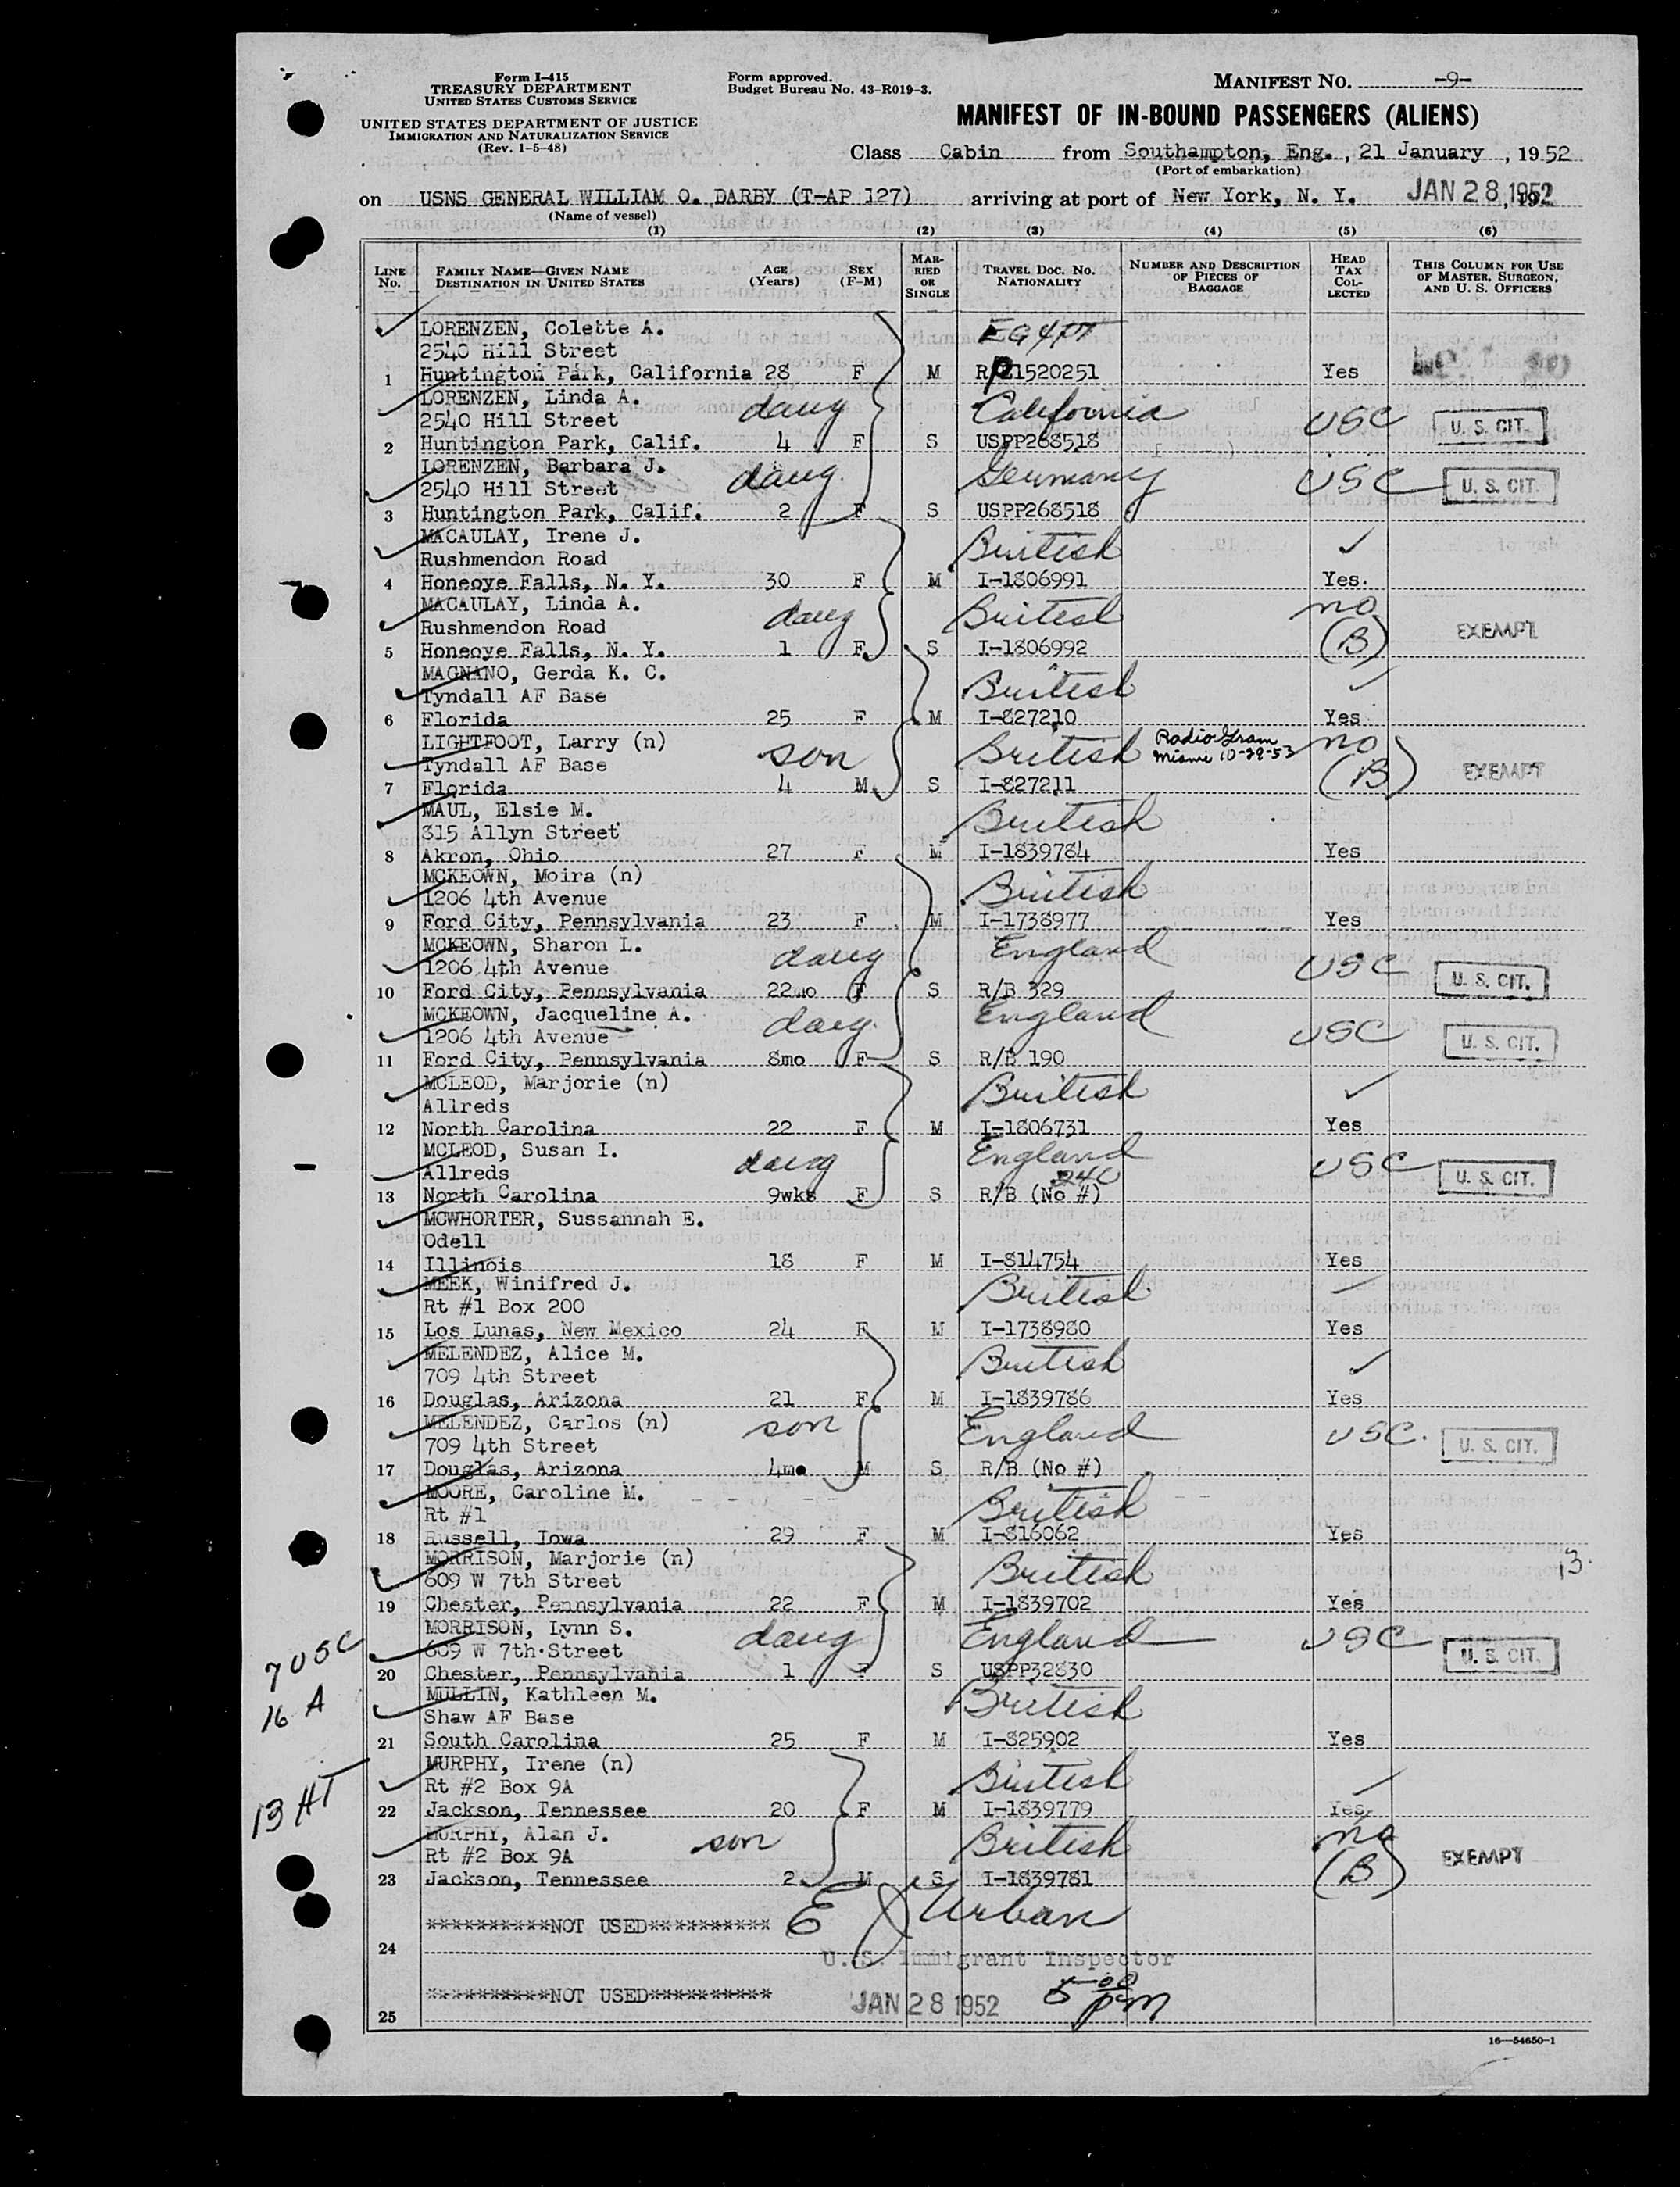 Form I-415
TREASURY DEPARTMENT
UNITED STATES CUSTOMS SERVICE
UNITED STATES DEPARTMENT OF JUSTICE
IMMIGRATION AND NATURALIZATION SERVICE
(Rev. 1-5-48)
Form approved.
Budget Bureau No. 43-R019-3.
MANIFEST NO. -9-
MANIFEST OF IN-BOUND PASSENGERS (ALIENS)
Class Cabin from Southampton, Eng., 21 January, 1952
(Port of embarkation)
on USNS GENERAL WILLIAM O. DARBY (T-AP 127) arriving at port of New York, N. Y. JAN 28 1952, 19
(Name of vessel)
(1) (2) (3) (4) (5) (6)
LINE No. FAMILY NAME—GIVEN NAME DESTINATION IN UNITED STATES AGE (Years) SEX (F-M) MARRIED OR SINGLE TRAVEL DOC. NO. NATIONALITY NUMBER AND DESCRIPTION OF PIECES OF BAGGAGE HEAD TAX COLLECTED THIS COLUMN FOR USE OF MASTER, SURGEON, AND U. S. OFFICERS
LORENZEN, Colette A. EGYPT
2540 Hill Street
1 Huntington Park, California 28 F M RP21520251 Yes
LORENZEN, Linda A. daug California USC U. S. CIT.
2540 Hill Street
2 Huntington Park, Calif. 4 F S USPP268518
LORENZEN, Barbara J. daug. Germany USC U. S. CIT.
2540 Hill Street
3 Huntington Park, Calif. 2 F S USPP268518
MACAULAY, Irene J. British
Rushmendon Road
4 Honeoye Falls, N. Y. 30 F M I-1806991 Yes.
MACAULAY, Linda A. daug British no
Rushmendon Road EXEMPT
5 Honeoye Falls, N. Y. 1 F S I-1806992 (B)
MAGNANO, Gerda K. C. British
Tyndall AF Base
6 Florida 25 F M I-827210 Yes
LIGHTFOOT, Larry (n) son British RadioGram no
Tyndall AF Base Miami 10-29-53 (B) EXEMPT
7 Florida 4 M S I-827211
MAUL, Elsie M. British
315 Allyn Street
8 Akron, Ohio 27 F M I-1839784 Yes
MCKEOWN, Moira (n) British
1206 4th Avenue
9 Ford City, Pennsylvania 23 F M I-1738977 Yes
MCKEOWN, Sharon L. daug England USC U. S. CIT.
1206 4th Avenue
10 Ford City, Pennsylvania 22mo F S R/B 329
MCKEOWN, Jacqueline A. daug. England USC U. S. CIT.
1206 4th Avenue
11 Ford City, Pennsylvania 8mo F S R/B 190
MCLEOD, Marjorie (n) British
Allreds
12 North Carolina 22 F M I-1806731 Yes
MCLEOD, Susan I. daug England USC U. S. CIT.
Allreds 240
13 North Carolina 9wks F S R/B (No #)
MCWHORTER, Sussannah E.
Odell
14 Illinois 18 F M I-814754 Yes
MEEK, Winifred J. British
Rt #1 Box 200
15 Los Lunas, New Mexico 24 F M I-1738980 Yes
MELENDEZ, Alice M. British
709 4th Street
16 Douglas, Arizona 21 F M I-1839786 Yes
MELENDEZ, Carlos (n) son England USC. U. S. CIT.
709 4th Street
17 Douglas, Arizona 4mo M S R/B (No #)
MOORE, Caroline M. British
Rt #1
18 Russell, Iowa 29 F M I-816062 Yes
MORRISON, Marjorie (n) British 13.
609 W 7th Street
19 Chester, Pennsylvania 22 F M I-1839702 Yes
MORRISON, Lynn S. daug England USC U. S. CIT.
609 W 7th Street
7 USC
20 Chester, Pennsylvania 1 F S USPP32830
16 A
MULLIN, Kathleen M. British
Shaw AF Base
21 South Carolina 25 F M I-825902 Yes
MURPHY, Irene (n) British
Rt #2 Box 9A
13 HT
22 Jackson, Tennessee 20 F M I-1839779 Yes.
MURPHY, Alan J. son British no
Rt #2 Box 9A (B) EXEMPT
23 Jackson, Tennessee 2 M S I-1839781
**********NOT USED********** E J Urban
24
U. S. Immigrant Inspector
**********NOT USED********** JAN 28 1952 5 00 pm
25
16—54650-1